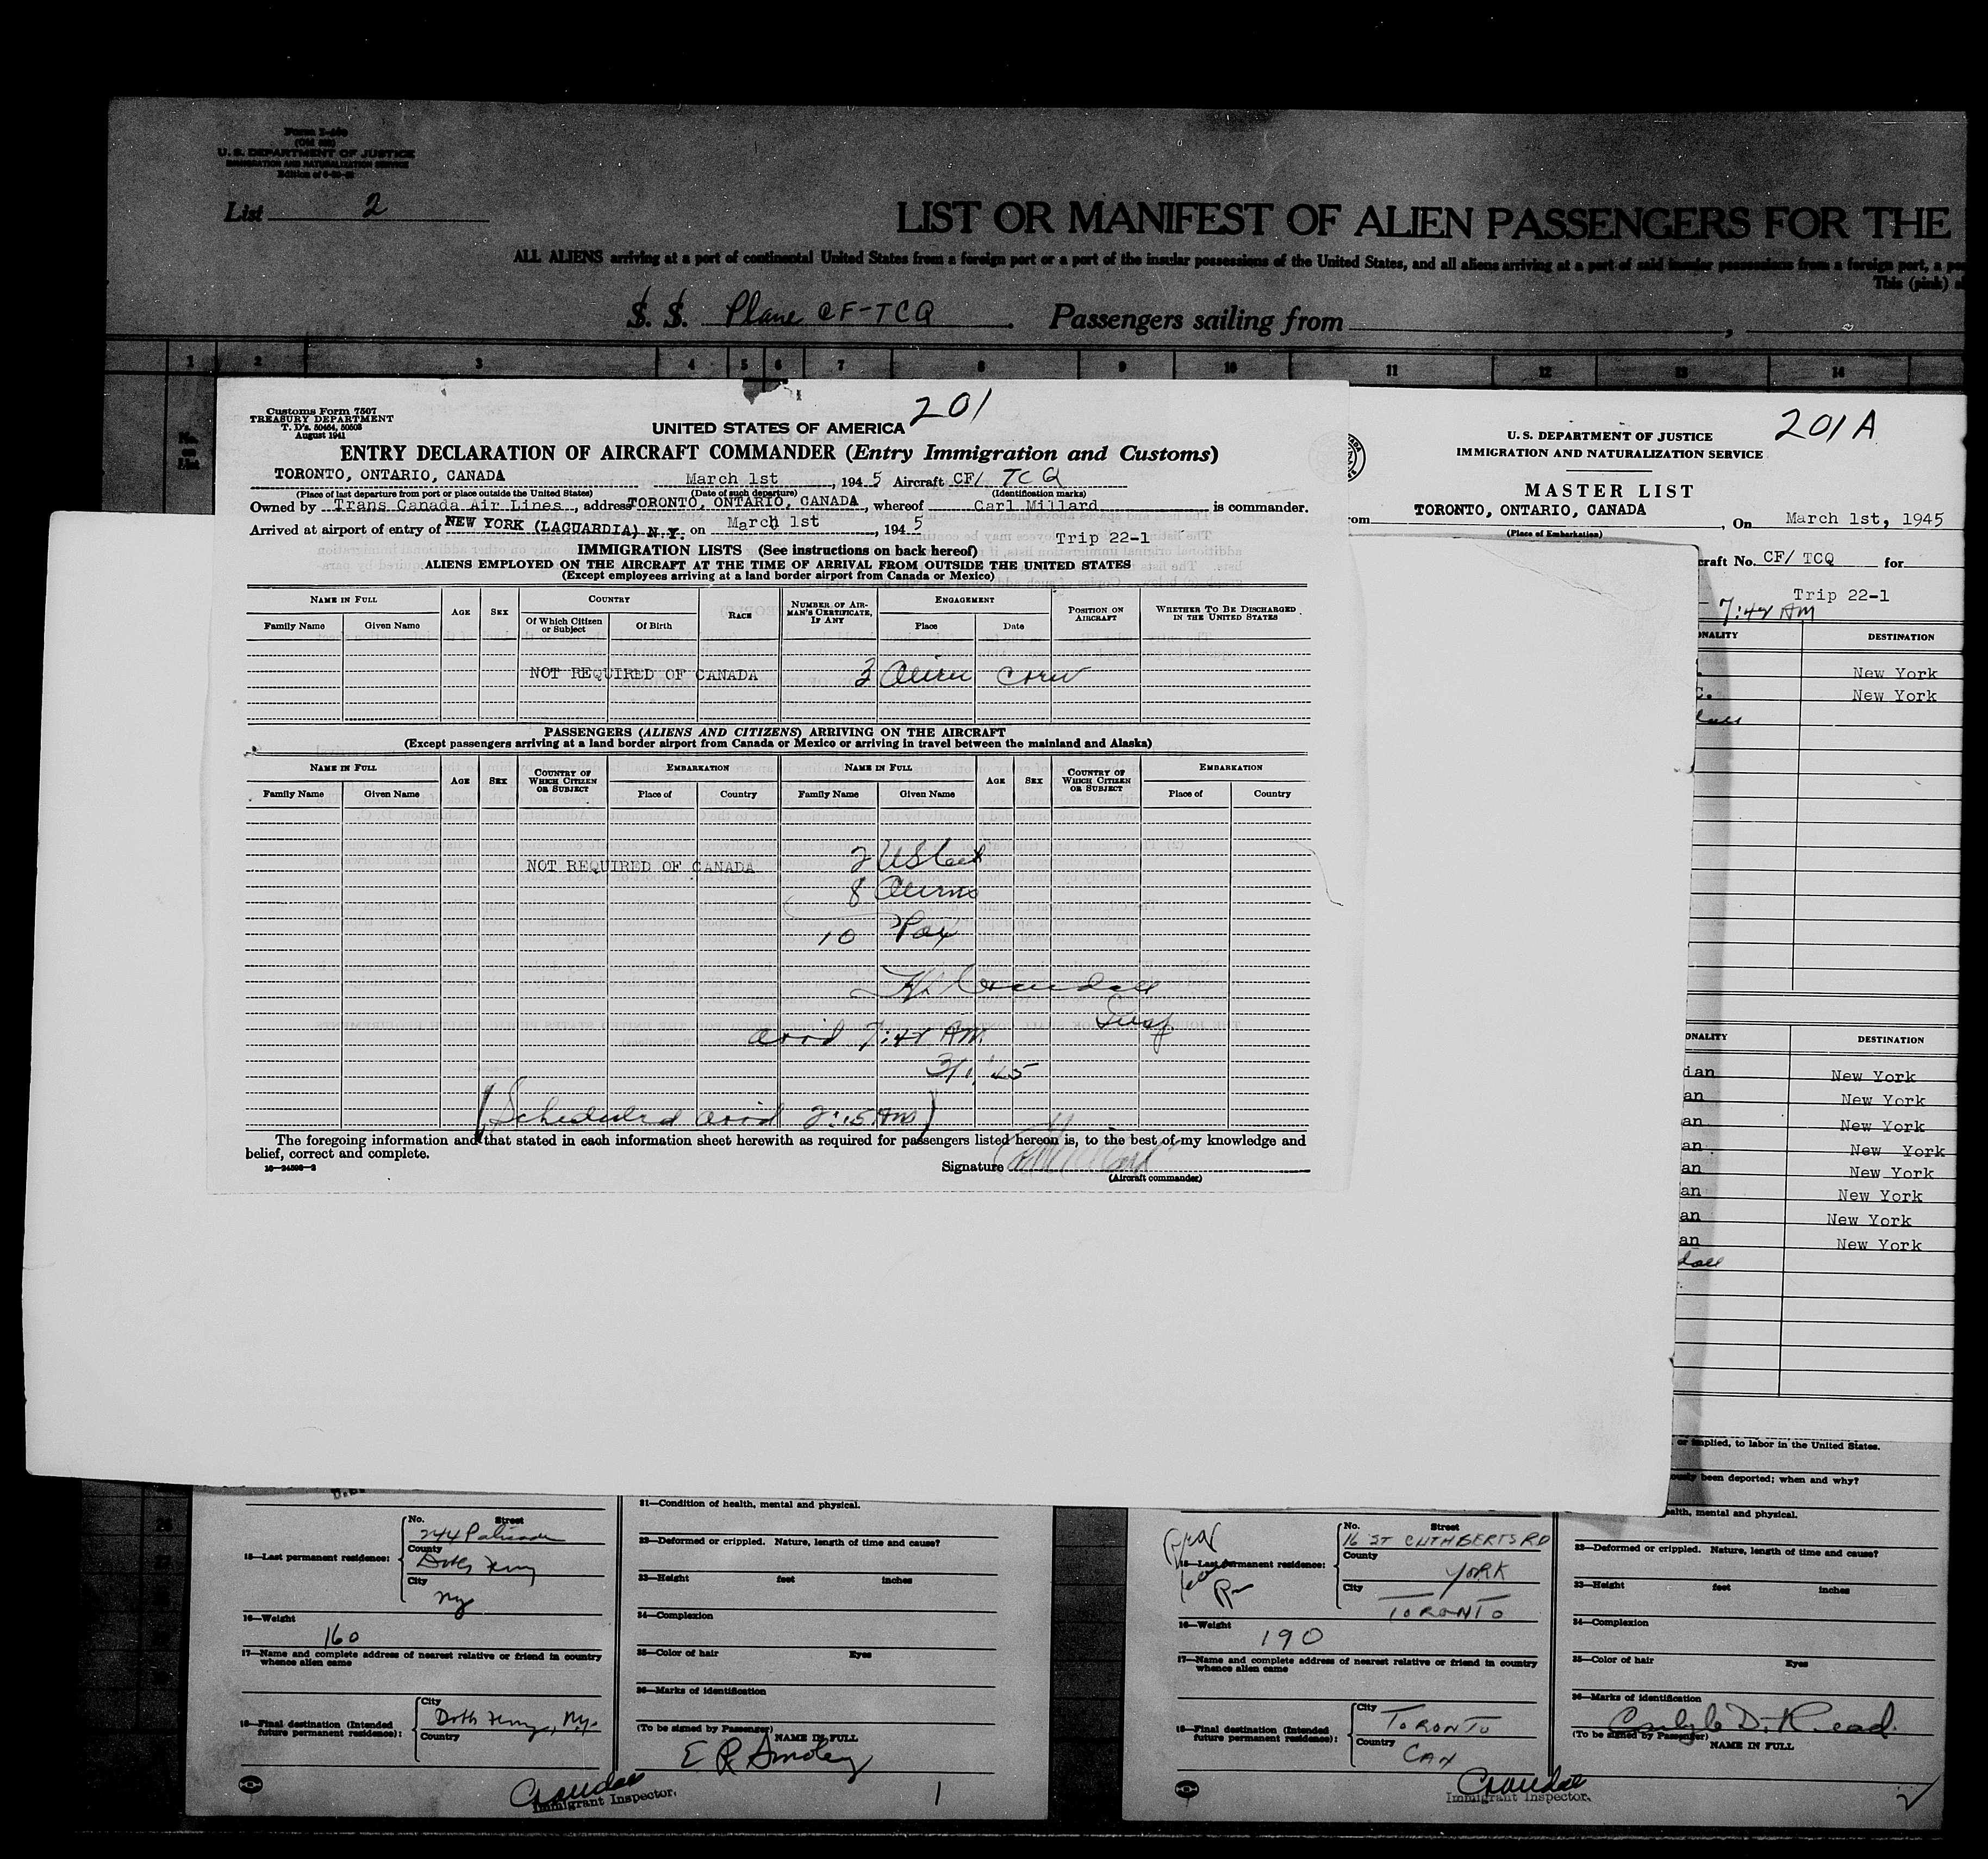 Form I-
U. S. DEPARTMENT OF JUSTICE
IMMIGRATION AND NATURALIZATION SERVICE
List 2
LIST OR MANIFEST OF ALIEN PASSENGERS FOR THE
ALL ALIENS arriving at a port of continental United States from a foreign port or a port of the insular possessions of the United States, and all aliens arriving at a port of said insular possessions from a foreign port, a
This (pink)
S. S. Plane CF-TCQ Passengers sailing from ,
1 2 3 4 5 6 7 8 9 10 11 12 13 14
No. on List
201
Customs Form 7507
TREASURY DEPARTMENT
T. D's. 50464, 50503
August 1941
UNITED STATES OF AMERICA
ENTRY DECLARATION OF AIRCRAFT COMMANDER (Entry Immigration and Customs)
TORONTO, ONTARIO, CANADA March 1st , 194 5 Aircraft CF/ TCQ
(Place of last departure from port or place outside the United States) (Date of such departure) (Identification marks)
Owned by Trans Canada Air Lines , address TORONTO, ONTARIO, CANADA , whereof Carl Millard is commander.
Arrived at airport of entry of NEW YORK (LAGUARDIA) N.Y. on March 1st , 194 5
Trip 22-1
IMMIGRATION LISTS (See instructions on back hereof)
ALIENS EMPLOYED ON THE AIRCRAFT AT THE TIME OF ARRIVAL FROM OUTSIDE THE UNITED STATES
(Except employees arriving at a land border airport from Canada or Mexico)
NAME IN FULL AGE SEX COUNTRY RACE NUMBER OF AIRMAN'S CERTIFICATE, IF ANY ENGAGEMENT POSITION ON AIRCRAFT WHETHER TO BE DISCHARGED IN THE UNITED STATES
Family Name Given Name Of Which Citizen or Subject Of Birth Place Date
NOT REQUIRED OF CANADA 3 Alien Crew
PASSENGERS (ALIENS AND CITIZENS) ARRIVING ON THE AIRCRAFT
(Except passengers arriving at a land border airport from Canada or Mexico or arriving in travel between the mainland and Alaska)
NAME IN FULL AGE SEX COUNTRY OF WHICH CITIZEN OR SUBJECT EMBARKATION NAME IN FULL AGE SEX COUNTRY OF WHICH CITIZEN OR SUBJECT EMBARKATION
Family Name Given Name Place of Country Family Name Given Name Place of Country
NOT REQUIRED OF CANADA 2 US
8 Aliens
10 Pax
Crandall
Insp
arrd 7:47 AM.
3/1/45
(Scheduled arrd 2:15 AM)
The foregoing information and that stated in each information sheet herewith as required for passengers listed hereon is, to the best of my knowledge and
belief, correct and complete.
16—24598—2
Signature
(Aircraft commander)
201 A
U. S. DEPARTMENT OF JUSTICE
IMMIGRATION AND NATURALIZATION SERVICE
MASTER LIST
TORONTO, ONTARIO, CANADA , On March 1st, 1945
(Place of Embarkation)
craft No. CF/ TCQ for
Trip 22-1
7:47 AM
ONALITY DESTINATION
New York
C. New York
ONALITY DESTINATION
dian New York
an New York
an New York
an New York
an New York
an New York
an New York
an New York
or implied, to labor in the United States.
ously been deported; when and why?
ealth, mental and physical.
15—Last permanent residence:
No. Street
244 Palisade
County
Dobbs Ferry
City
NY
16—Weight
160
17—Name and complete address of nearest relative or friend in country
whence alien came
18—Final destination (Intended
future permanent residence):
City
Dobbs Ferry, N.Y.
Country
21—Condition of health, mental and physical.
22—Deformed or crippled. Nature, length of time and cause?
23—Height feet inches
24—Complexion
25—Color of hair Eyes
26—Marks of identification
(To be signed by Passenger)
NAME IN FULL
Crandall
Immigrant Inspector.
1
15—Last permanent residence:
No. Street
16 ST CUTHBERTS RD
County
YORK
City
TORONTO
16—Weight
190
17—Name and complete address of nearest relative or friend in country
whence alien came
18—Final destination (Intended
future permanent residence):
City
TORONTO
Country
CAN
22—Deformed or crippled. Nature, length of time and cause?
23—Height feet inches
24—Complexion
25—Color of hair Eyes
26—Marks of identification
Carlyle D. Read.
(To be signed by Passenger)
NAME IN FULL
Crandall
Immigrant Inspector.